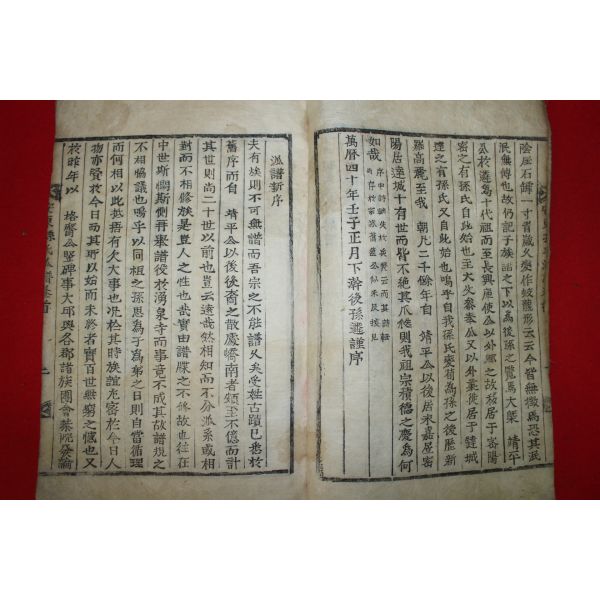 陰屈石鱗一寸首嵗久變作蛟龍形云云今皆無徵焉恐其泯
泯無傳也故仍記于族譜之下以爲後孫之覽焉大槩 靖平
公於遜爲十代祖而至長興庫使公以外鄕之故移居于密陽
密之有孫氏自此始也至大丈 公又以外業徙居于達城
達之有孫氏又自此始也嗚乎自我孫氏 荀爲孫之後歷新
羅高麗至我 朝凡二千餘年自 靖平公以後居末嘉屋密
陽居達城十有世而皆不絶其 則我祖宗積德之慶爲何
如哉
萬曆四十年壬子正月下澣後孫遴謹序
派譜新序
夫有族則不可無譜而吾宗之不能譜久矣受姓古蹟已悉於
舊序而自 靖平公以後後裔之散處嶠南者頗至不億而計
其世則尙二十世以前也豈云遠哉然相知而不分派系或相
對而不相修族是豈人之性也哉實由譜牒之不修故也往在
中世斯 斯側再舉譜役於湧泉寺而事竟不成其故譜規之
不相協議也嗚乎以同祖之孫思爲子爲弟之日則自當循理
而何相以此 吾有欠大事也况於其時族誼尤密於今日人
物亦殷於今日而其所以始而未終者實百世無窮之憾也又
於昨年以 格齋公竪碑事大邱與各郡諸族團會 院發論